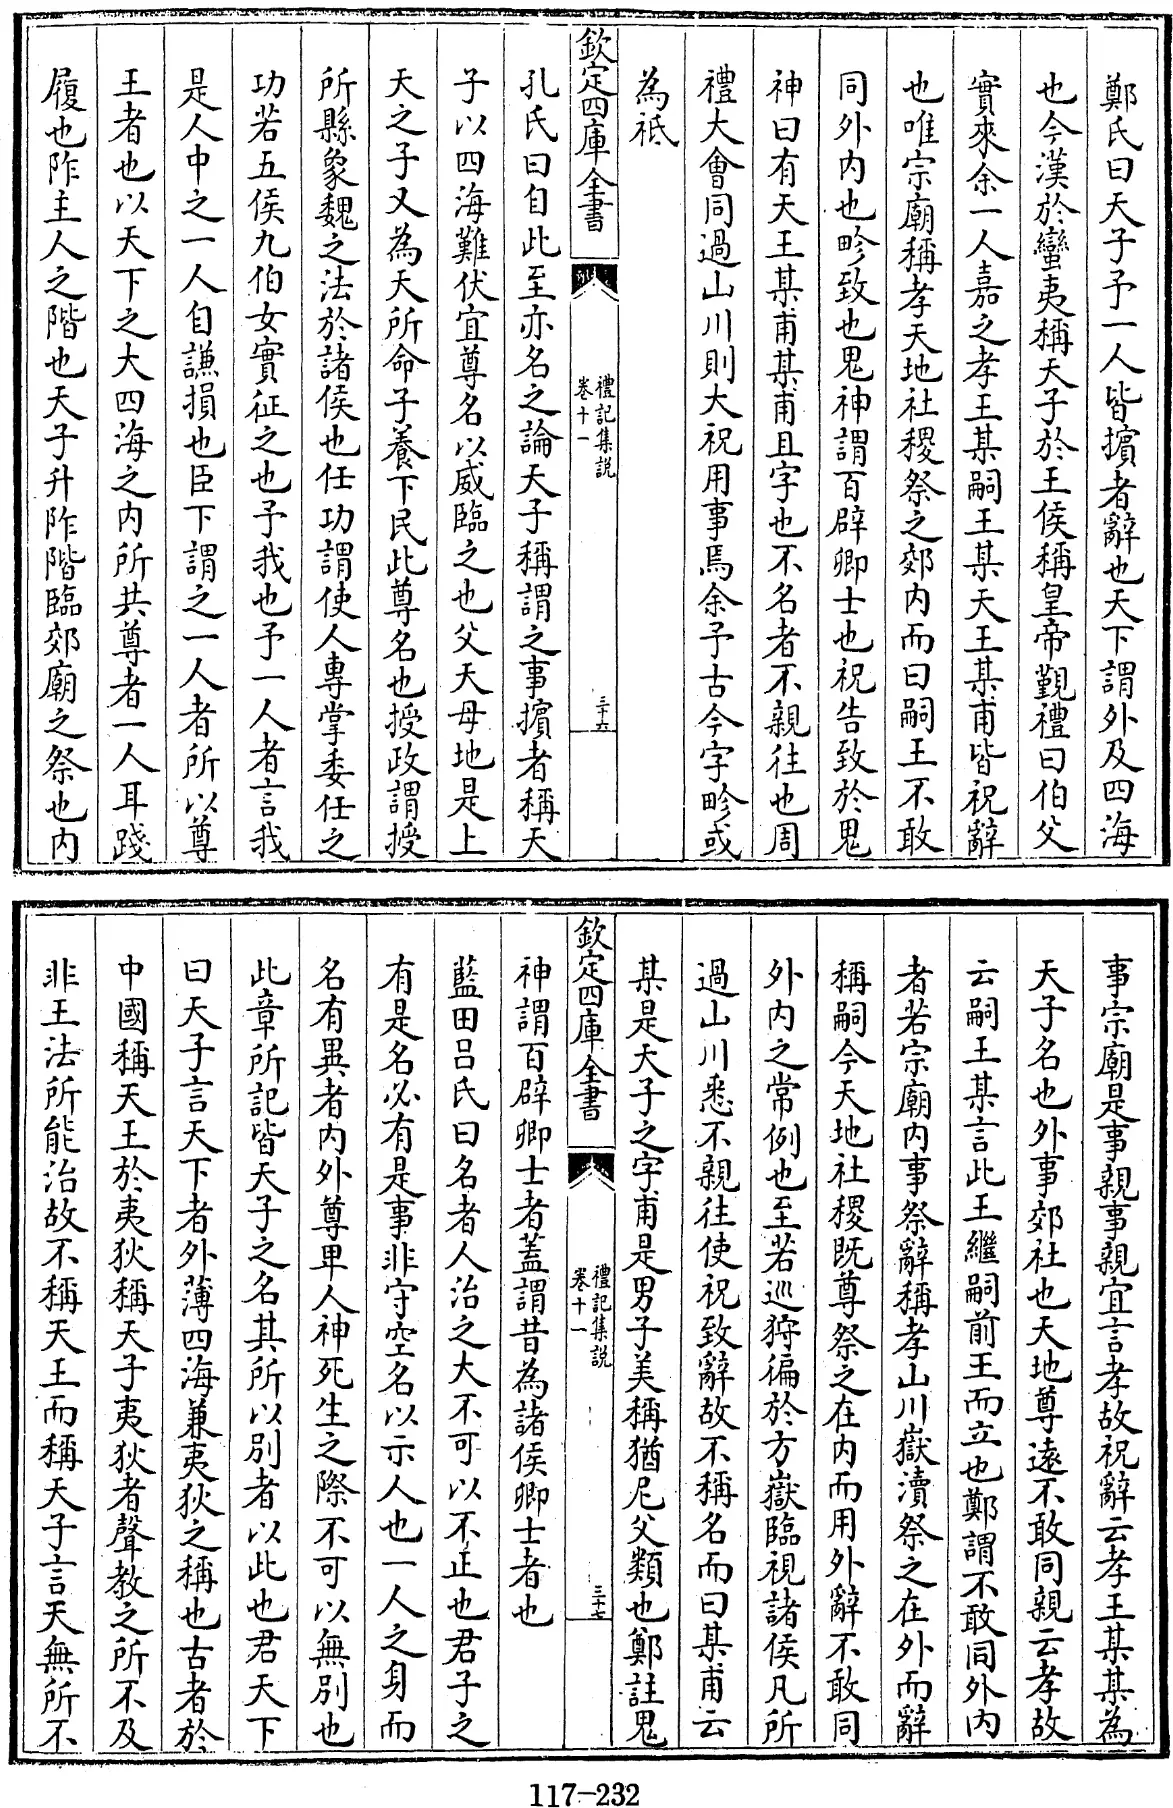 鄭氏曰天子予一人皆擯者辭也天下謂外及四海
也今漢於蠻夷稱天子於王侯稱皇帝覲禮曰伯父
實來余一人嘉之孝王某嗣王某天王某甫皆祝辭
也唯宗廟稱孝天地社稷祭之郊内而曰嗣王不敢
同外内也畛致也鬼神謂百辟卿士也祝告致於鬼
神曰有天王某甫某甫且字也不名者不親往也周
禮大會同過山川則大祝用事焉余予古今字畛或
為祗
欽定四庫全書
禮記集説
卷十一
三十六
孔氏曰自此至亦名之論天子稱謂之事擯者稱天
子以四海難伏宜尊名以威臨之也父天母地是上
天之子又為天所命子養下民此尊名也授政謂授
所縣象魏之法於諸侯也任功謂使人專掌委任之
功若五侯九伯女實征之也予我也予一人者言我
是人中之一人自謙損也臣下謂之一人者所以尊
王者也以天下之大四海之内所共尊者一人耳踐
履也阼主人之階也天子升阼階臨郊廟之祭也内
事宗廟是事親事親宜言孝故祝辭云孝王某某為
天子名也外事郊社也天地尊遠不敢同親云孝故
云嗣王某言此王繼嗣前王而立也鄭謂不敢同外内
者若宗廟内事祭辭稱孝山川嶽瀆祭之在外而辭
稱嗣今天地社稷既尊祭之在内而用外辭不敢同
外内之常例也至若巡狩徧於方嶽臨視諸侯凡所
過山川悉不親往使祝致辭故不稱名而曰某甫云
某是天子之字甫是男子美稱猶尼父類也鄭註鬼
欽定四庫全書
禮記集説
卷十一
三十七
神謂百辟卿士者蓋謂昔為諸侯卿士者也
藍田吕氏曰名者人治之大不可以不正也君子之
有是名必有是事非守空名以示人也一人之身而
名有異者内外尊卑人神死生之際不可以無别也
此章所記皆天子之名其所以别者以此也君天下
曰天子言天下者外薄四海兼夷狄之稱也古者於
中國稱天王於夷狄稱天子夷狄者聲教之所不及
非王法所能治故不稱天王而稱天子言天無所不
117-232